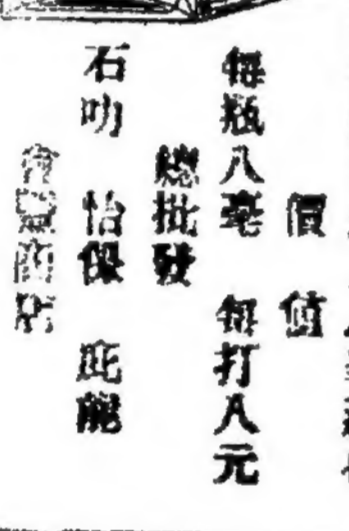 價值
每瓶八毫 每打八元
總批發
石叻 怡保 庇能
商店